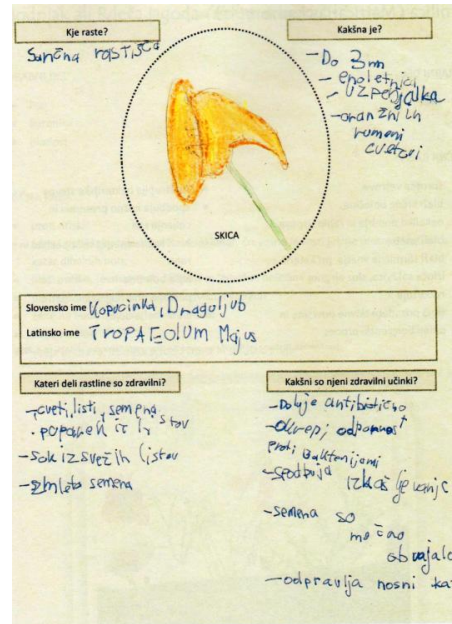 Kje raste?
Sončna rastišča
Kakšna je?
- Do 3m
- enoletnica
- vzpenjalka
- oranžni in
rumeni
cvetovi
SKICA
Slovensko ime Kapucinka, Dragoljub
Latinsko ime TROPAEOLUM Majus
Kateri deli rastline so zdravilni?
- cveti, listi, semena
- poparek iz listov
- sok iz svežih listov
- zmleta semena
Kakšni so njeni zdravilni učinki?
- Deluje antibiotično
- okrepi odpornost
proti bakterijami
- spodbuja izkašljevanje
- semena so
močno
odvajalo
- odpravlja nosni ka